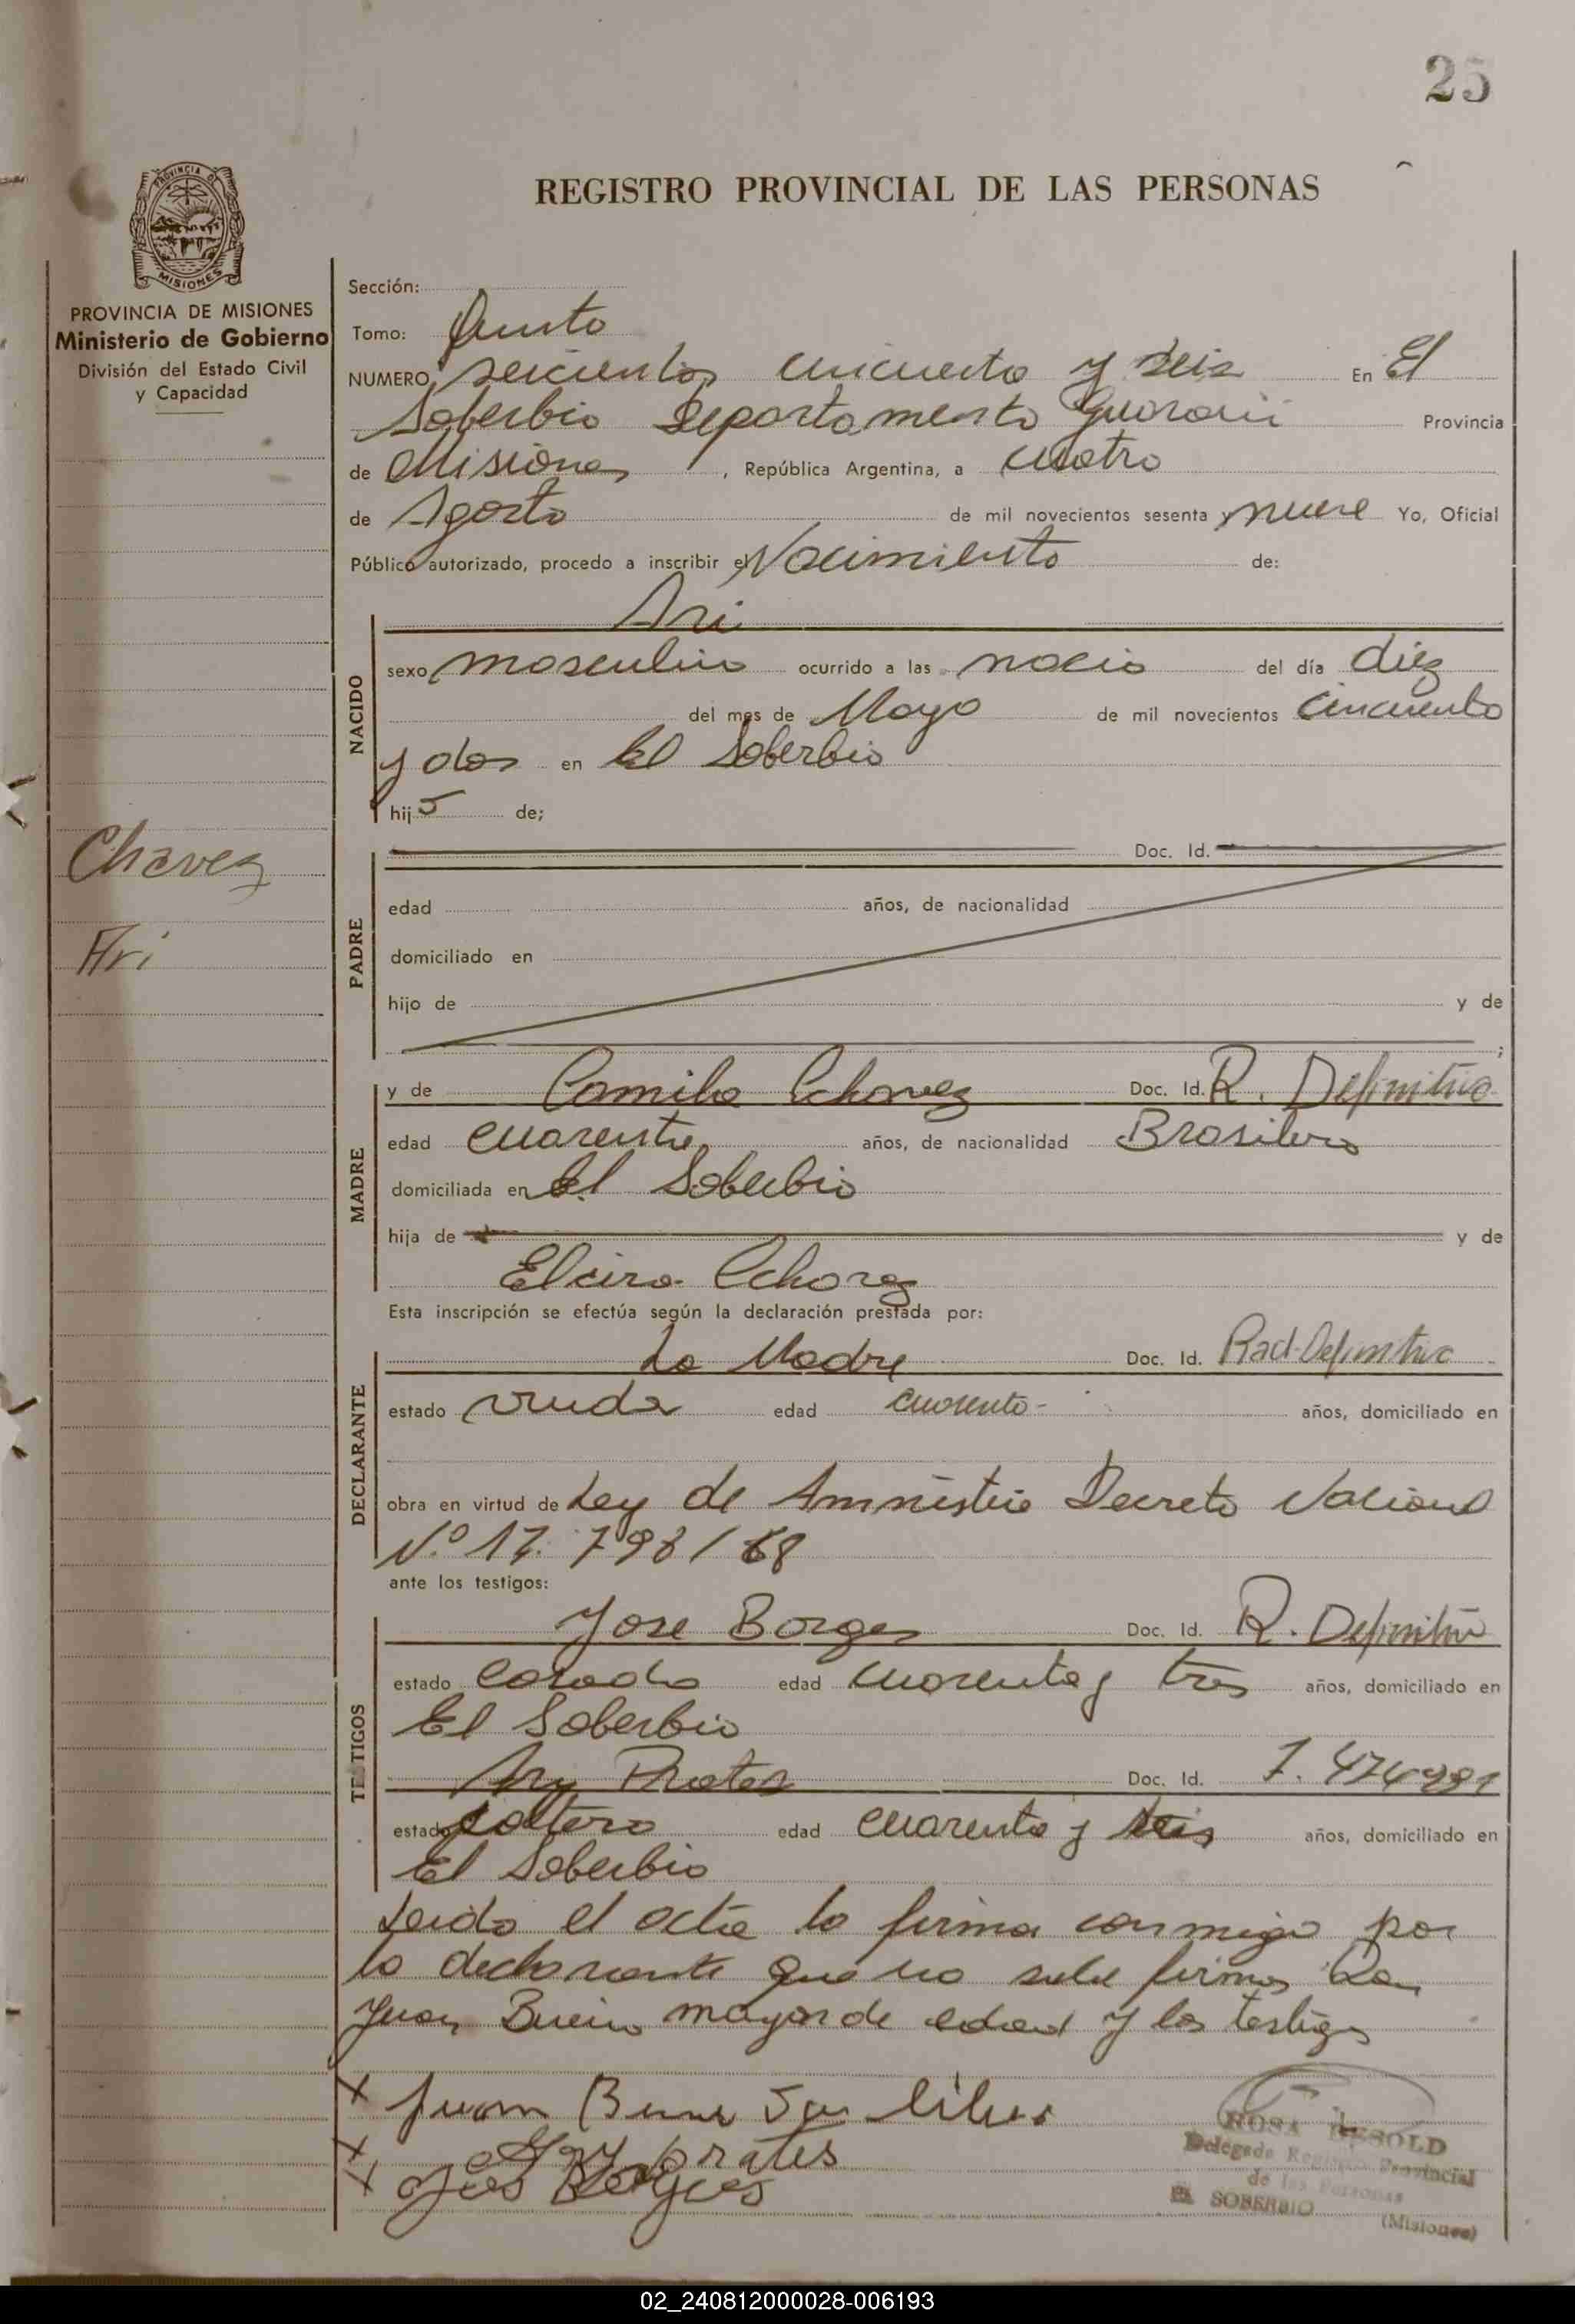 25
REGISTRO PROVINCIAL DE LAS PERSONAS
PROVINCIA DE
MISIONES
PROVINCIA DE MISIONES
Ministerio de Gobierno
División del Estado Civil
y Capacidad
Chavez
Ari
Sección:
Tomo: Quinto
NUMERO seicientos cincuenta y seis En El
Soberbio Departamento Guarani Provincia
de Misiones, República Argentina, a cuatro
de Agosto de mil novecientos sesenta y nueve Yo, Oficial
Público autorizado, procedo a inscribir el Nacimiento de:
NACIDO
Ari
sexo masculino ocurrido a las nacio del día diez
del mes de Mayo de mil novecientos cincuenta
y dos en El Soberbio
hijo de;
PADRE
Doc. Id.
edad años, de nacionalidad
domiciliado en
hijo de y de
;
MADRE
y de Camila Chavez Doc. Id. R. Definitiva
edad cuarenta años, de nacionalidad Brasilera
domiciliada en El Soberbio
hija de y de
Elcira Chavez
Esta inscripción se efectúa según la declaración prestada por:
DECLARANTE
La Madre Doc. Id. Rad. Definitiva
estado viuda edad cuarenta - años, domiciliado en
obra en virtud de Ley de Amnistia Decreto Nacional
N.º 17. 798 / 68
ante los testigos:
TESTIGOS
Jose Borges Doc. Id. R. Definitiva
estado casado edad cuarenta y tres años, domiciliado en
El Soberbio
Ary Prates Doc. Id. 7. 474991
estado soltero edad cuarenta y seis años, domiciliado en
El Soberbio
Leido el acta la firma conmigo por
la declarante que no sabe firmar Don
Juan Bueno mayor de edad y los testigos
x Juan
x Ary prates
x Borges
ROSA DESOLD
Delegada Registro Provincial
de las Personas
EL SOBERBIO
(Misiones)
02_240812000028-006193